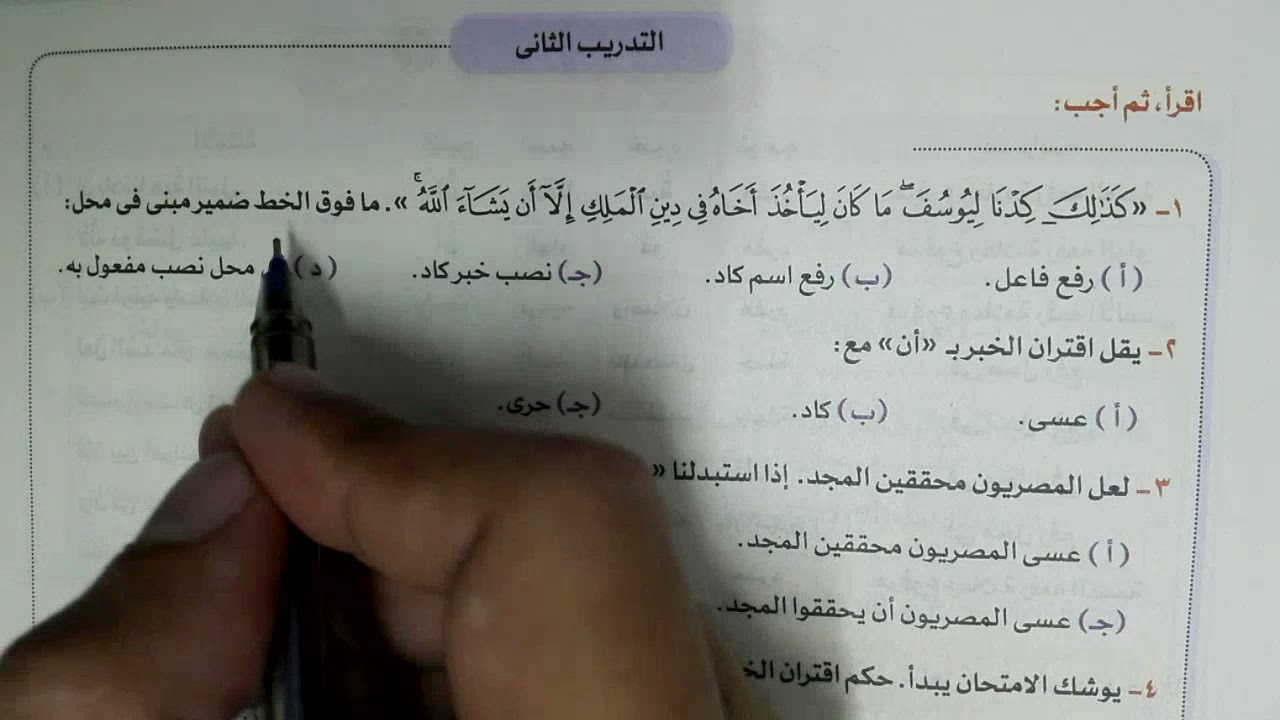 التدريب الثانى
اقرأ، ثم أجب:
١- «كَذَٰلِكَ كِدْنَا لِيُوسُفَ ۖ مَا كَانَ لِيَأْخُذَ أَخَاهُ فِى دِينِ ٱلْمَلِكِ إِلَّآ أَن يَشَآءَ ٱللَّهُ ۚ». ما فوق الخط ضمير مبنى فى محل:
(أ) رفع فاعل. (ب) رفع اسم كاد. (جـ) نصب خبر كاد. (د) محل نصب مفعول به.
٢- يقل اقتران الخبر بـ «أن» مع:
(أ) عسى. (ب) كاد. (جـ) حرى.
٣- لعل المصريون محققين المجد. إذا استبدلنا «
(أ) عسى المصريون محققين المجد.
(جـ) عسى المصريون أن يحققوا المجد.
٤- يوشك الامتحان يبدأ. حكم اقتران